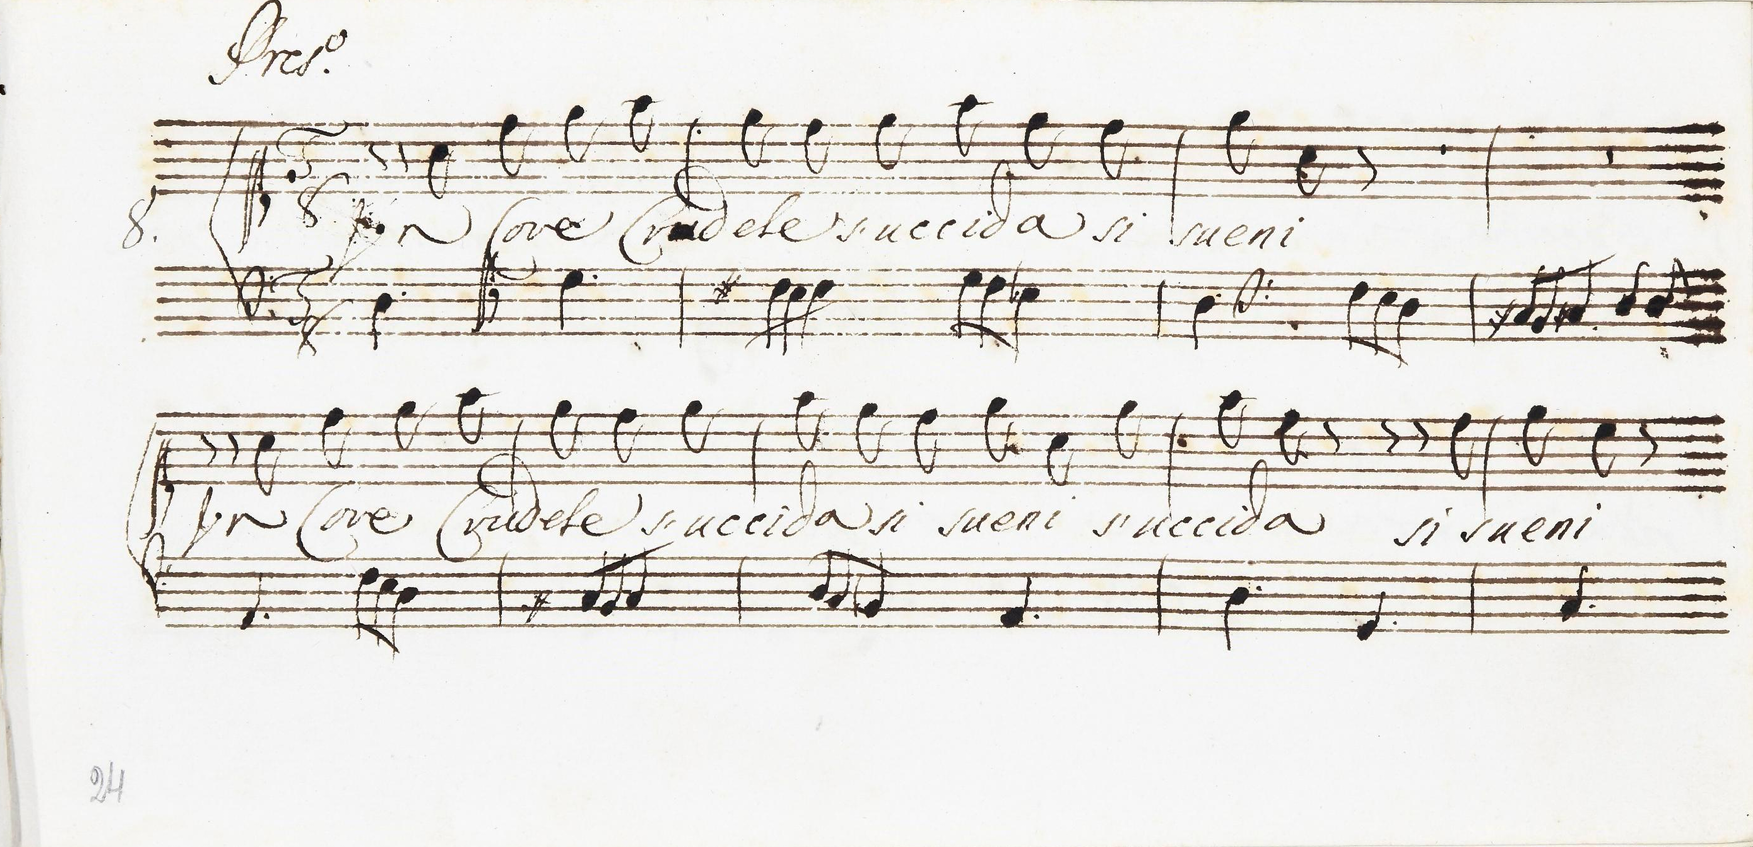 Pres.º
8.
Cor Crudele succida si sueni
Cor Crudele succida si sueni succida si sueni
24